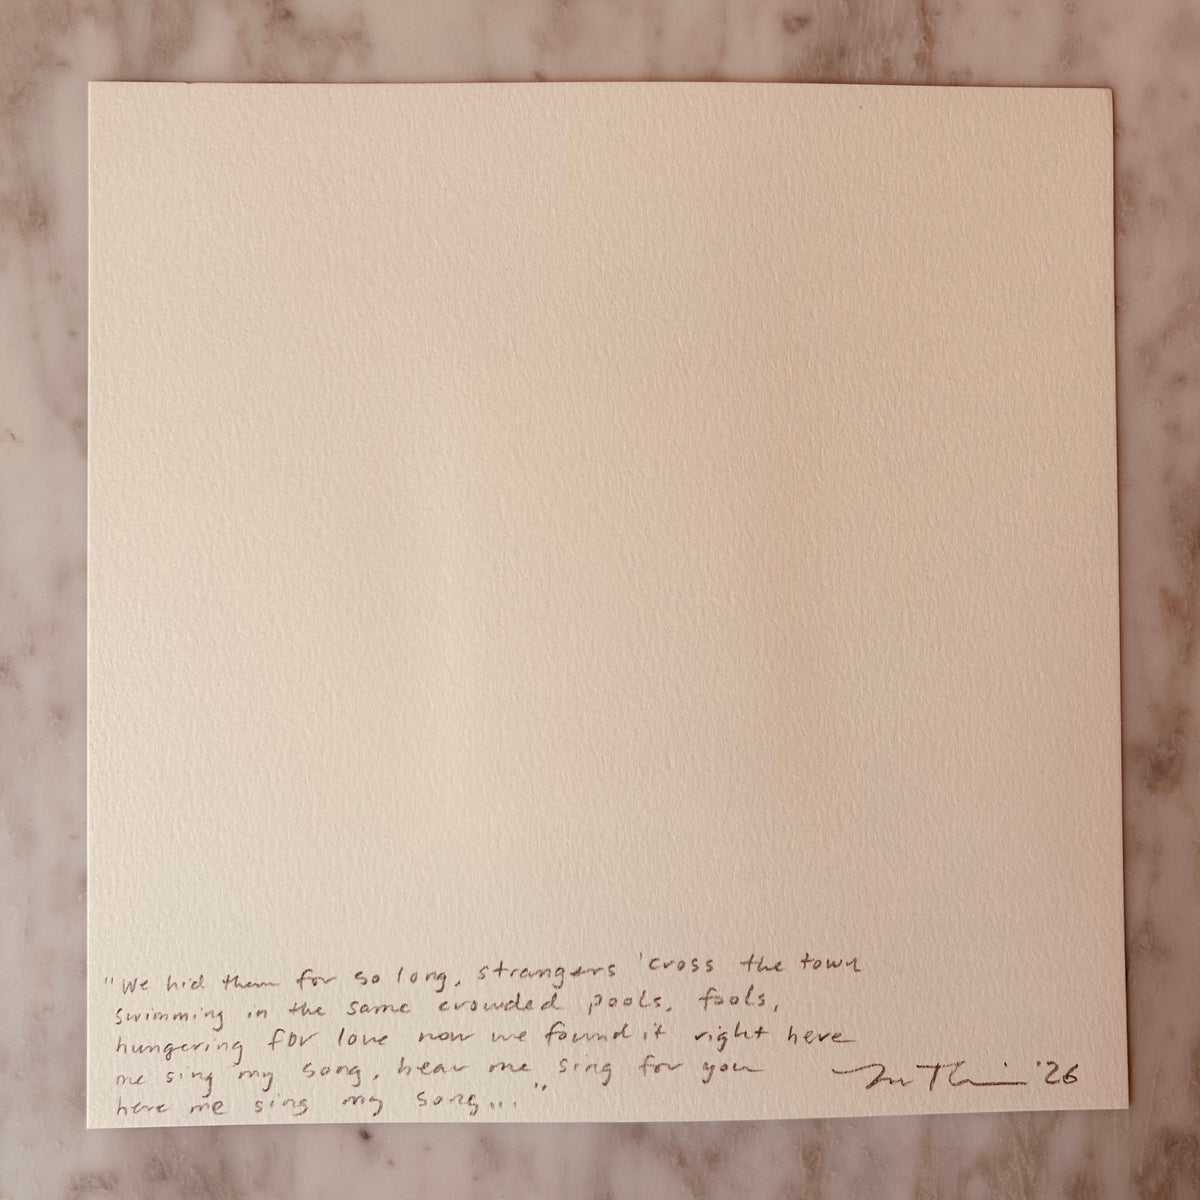 "We hid them for so long, strangers 'cross the town
swimming in the same crowded pools, fools,
hungering for love now we found it right here
me sing my song, hear me sing for you
here me sing my song..."
'26